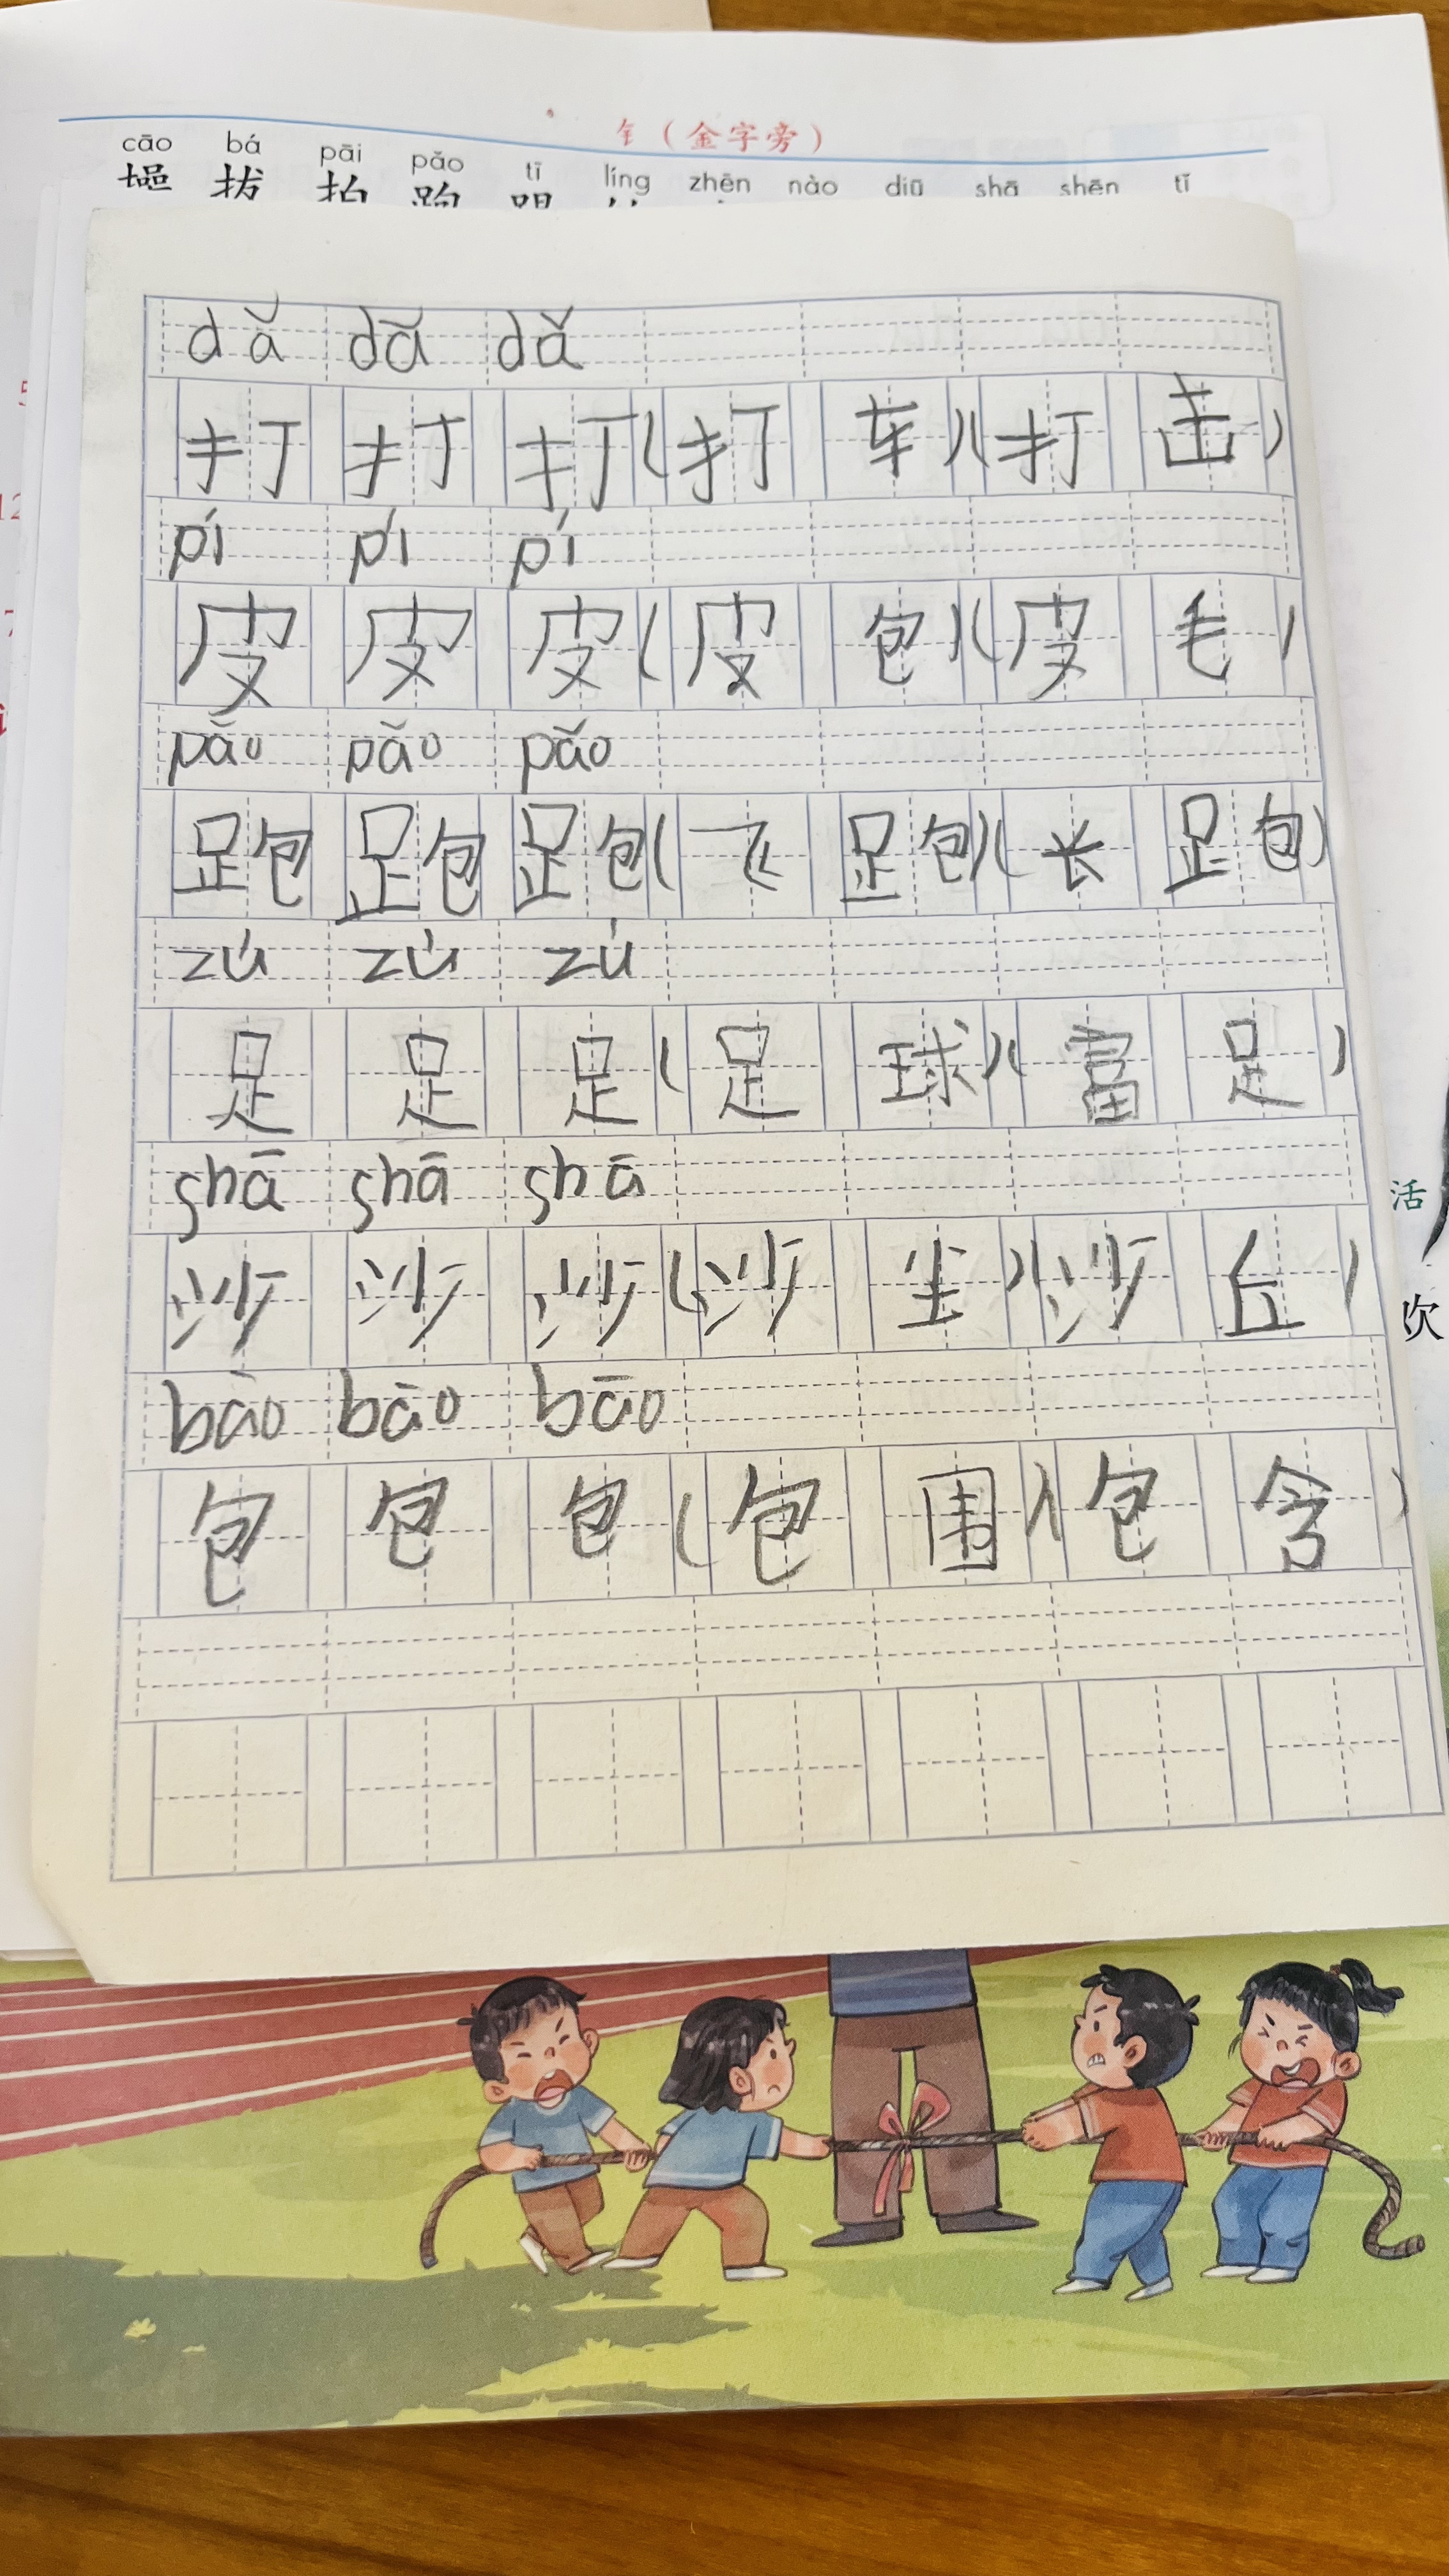 钅（金字旁）
cāo bá pāi pǎo tī líng zhēn nào diū shā shēn tǐ
拔 拍 跑 踢
dǎ dǎ dǎ
打 打 打（打 车）（打 击）
pí pí pí
皮 皮 皮（皮 包）（皮 毛）
pǎo pǎo pǎo
跑 跑 跑（飞 跑）（长 跑）
zú zú zú
足 足 足（足 球）（富 足）
shā shā shā
沙 沙 沙（沙 尘）（沙 丘）
bāo bāo bāo
包 包 包（包 围）（包 含）
活
吹